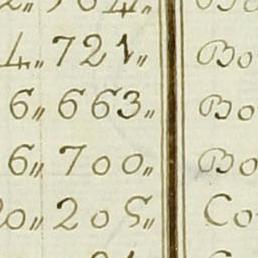 4„721„ Bo
6„663„ Bo
6„700„ Bo
20„205„ Co